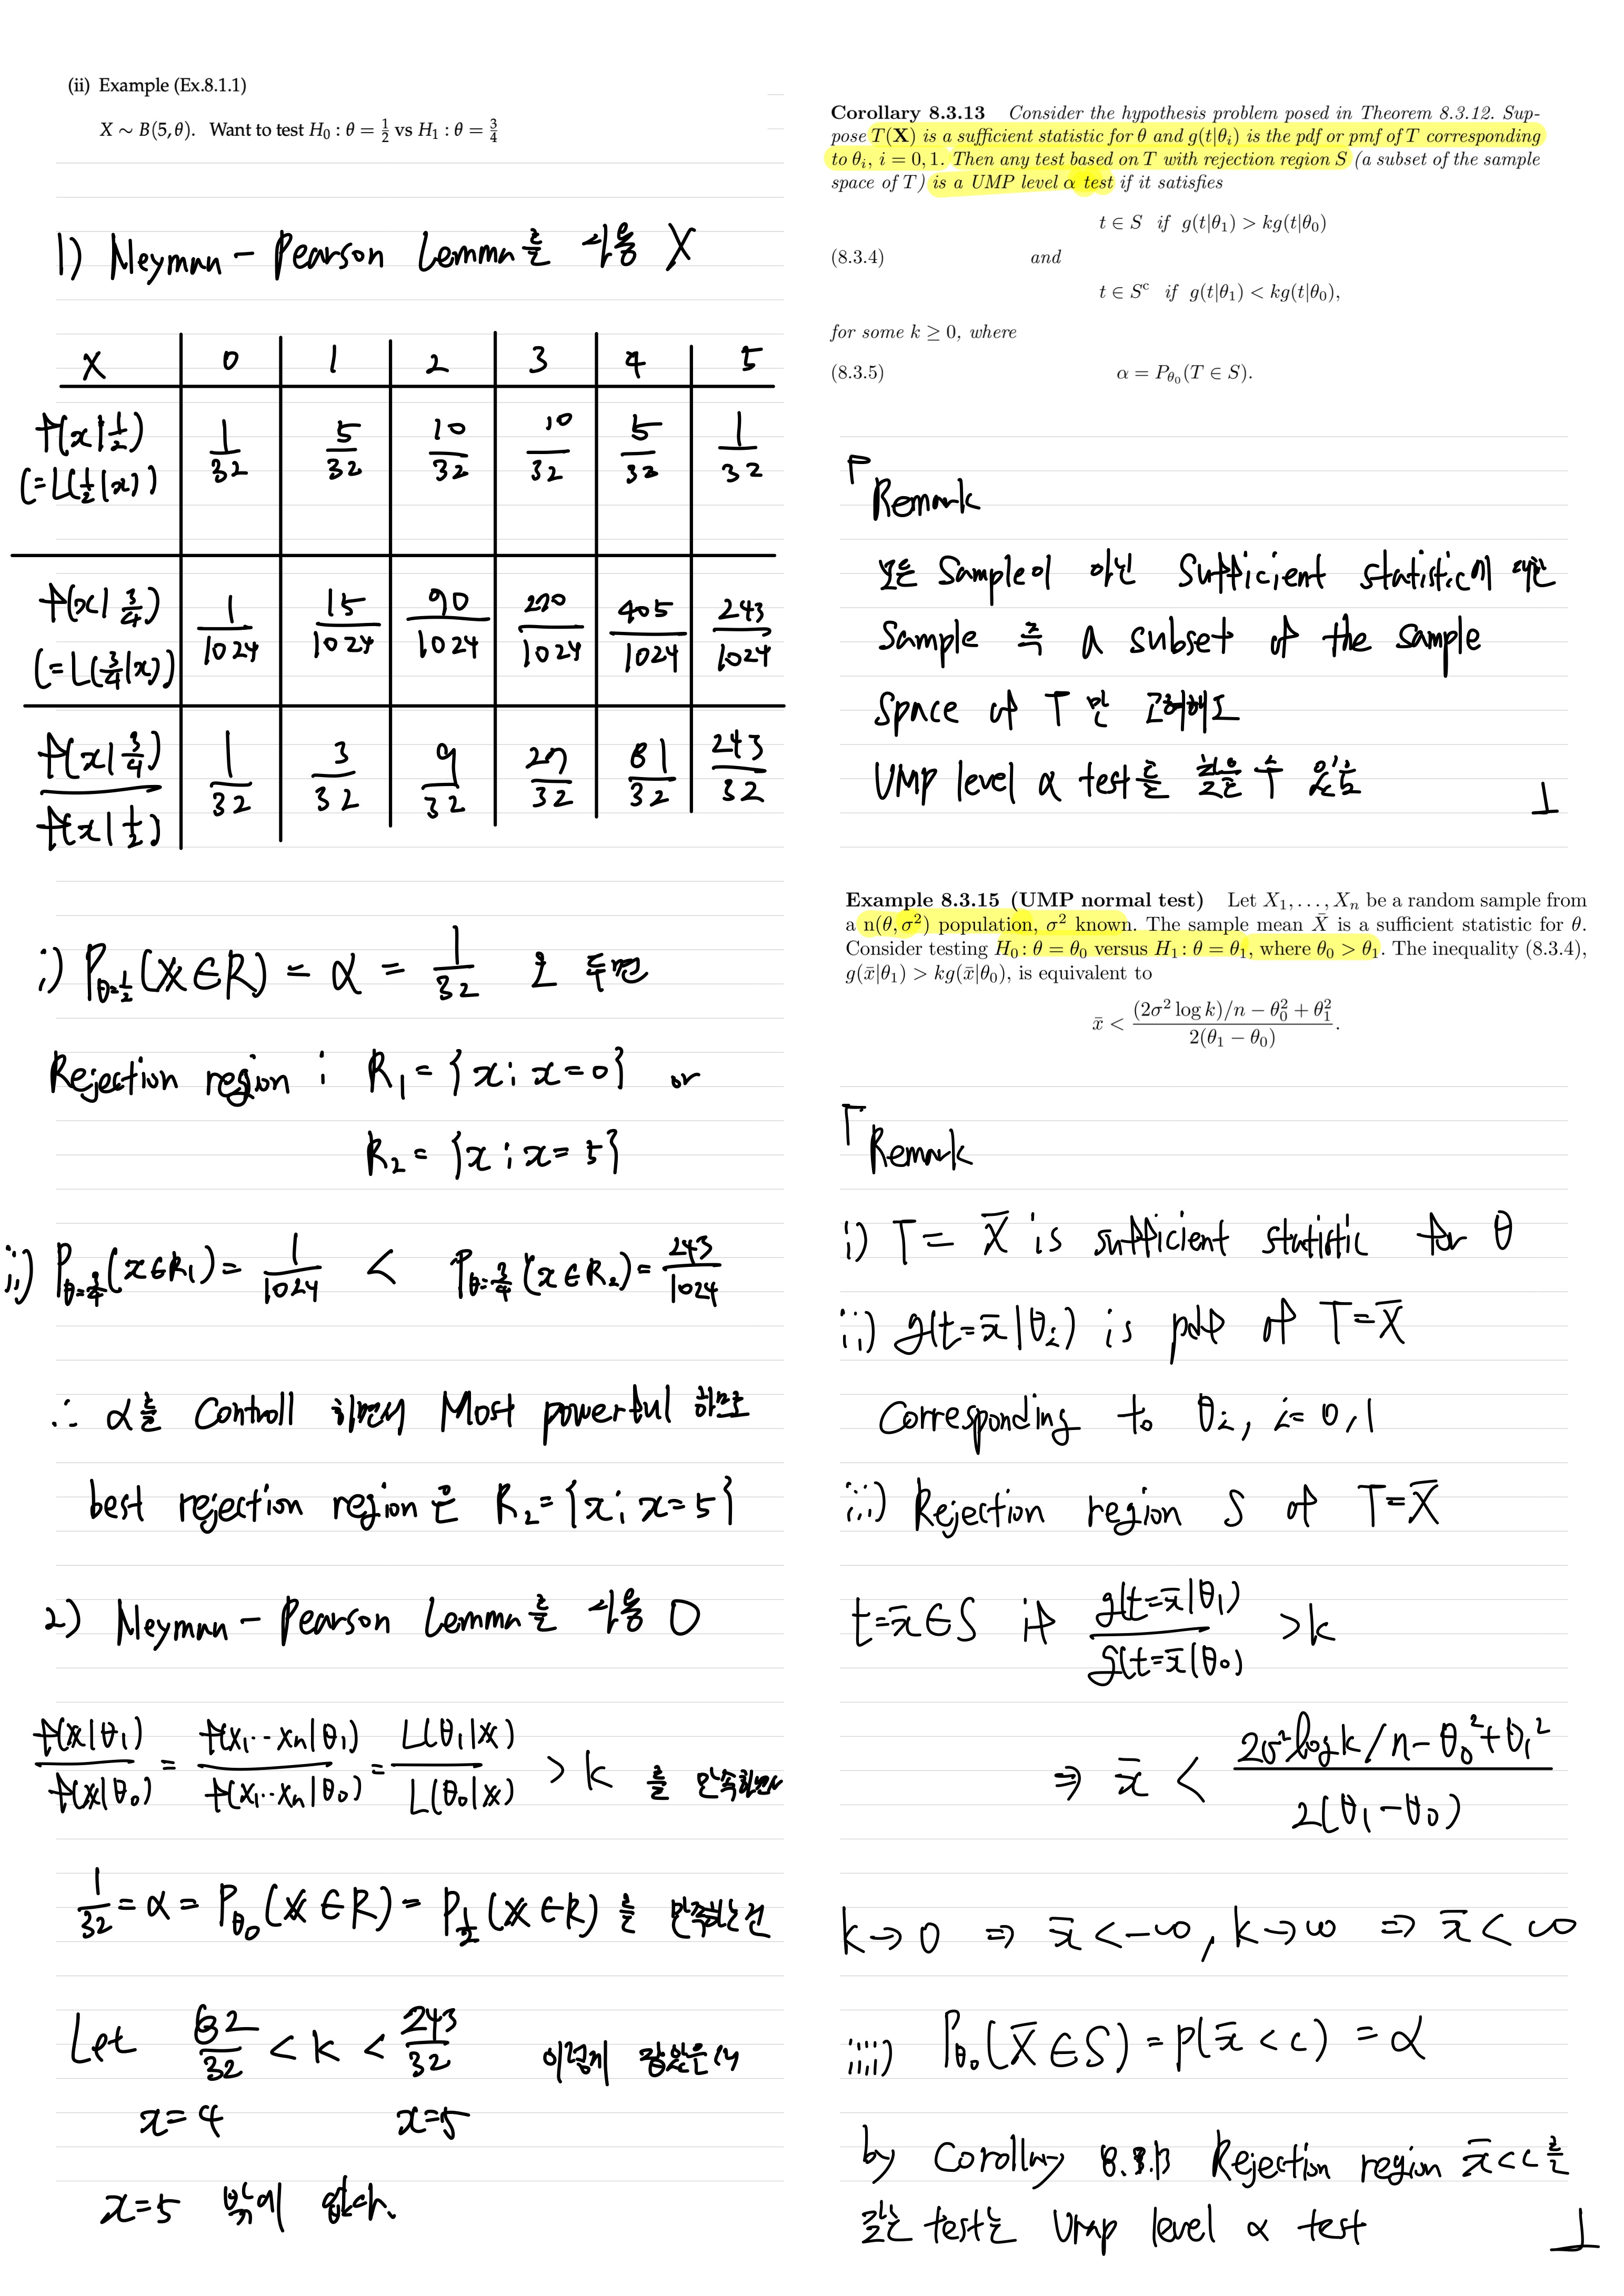 (ii) Example (Ex.8.1.1)
X ∼ B(5, θ). Want to test H₀ : θ = 1/2 vs H₁ : θ = 3/4
1) Neyman - Pearson Lemma를 사용 X
X 0 1 2 3 4 5
f(x|1/2) 1/32 5/32 10/32 10/32 5/32 1/32
(=L(1/2|x))
f(x|3/4) 1/1024 15/1024 90/1024 270/1024 405/1024 243/1024
(=L(3/4|x))
f(x|3/4)/f(x|1/2) 1/32 3/32 9/32 27/32 81/32 243/32
i) P_{θ=1/2}(X∈R) = α = 1/32 로 두면
Rejection region : R₁ = {x : x=0} or
R₂ = {x : x=5}
ii) P_{θ=3/4}(x∈R₁) = 1/1024 < P_{θ=3/4}(x∈R₂) = 243/1024
∴ α를 Controll 하면서 Most powerful 하므로
best rejection region은 R₂={x : x=5}
2) Neyman - Pearson Lemma를 사용 O
f(x|θ₁)/f(x|θ₀) = f(x₁··xₙ|θ₁)/f(x₁··xₙ|θ₀) = L(θ₁|x)/L(θ₀|x) > k 를 만족하면서
1/32 = α = P_{θ₀}(X∈R) = P_{1/2}(X∈R) 를 만족하는건
Let 82/32 < k < 243/32 이렇게 잡았은때
x=4 x=5
x=5 밖에 없다.
Corollary 8.3.13 Consider the hypothesis problem posed in Theorem 8.3.12. Sup-
pose T(X) is a sufficient statistic for θ and g(t|θᵢ) is the pdf or pmf of T corresponding
to θᵢ, i = 0, 1. Then any test based on T with rejection region S (a subset of the sample
space of T) is a UMP level α test if it satisfies
t ∈ S if g(t|θ₁) > kg(t|θ₀)
(8.3.4) and
t ∈ Sᶜ if g(t|θ₁) < kg(t|θ₀),
for some k ≥ 0, where
(8.3.5) α = P_{θ₀}(T ∈ S).
「Remark
모든 Sample이 아닌 Sufficient statistic에 대한
Sample 즉 a subset of the sample
space of T 만 고려해도
UMP level α test를 찾을 수 있음 」
Example 8.3.15 (UMP normal test) Let X₁, . . . , Xₙ be a random sample from
a n(θ, σ²) population, σ² known. The sample mean X̄ is a sufficient statistic for θ.
Consider testing H₀ : θ = θ₀ versus H₁ : θ = θ₁, where θ₀ > θ₁. The inequality (8.3.4),
g(x̄|θ₁) > kg(x̄|θ₀), is equivalent to
x̄ < ((2σ² log k)/n − θ₀² + θ₁²)/(2(θ₁ − θ₀)).
「Remark
i) T = X̄ is sufficient statistic for θ
ii) g(t=x̄|θᵢ) is pdf of T=X̄
corresponding to θᵢ, i=0,1
iii) Rejection region S of T=X̄
t=x̄∈S if g(t=x̄|θ₁)/g(t=x̄|θ₀) >k
⇒ x̄ < (2σ²logk/n−θ₀²+θ₁²)/(2(θ₁−θ₀))
k→0 ⇒ x̄<−∞, k→∞ ⇒ x̄<∞
iiii) P_{θ₀}(X̄∈S) = p(x̄<c) = α
by Corollary 8.3.13 Rejection region x̄<c를
갖는 test는 Ump level α test 」